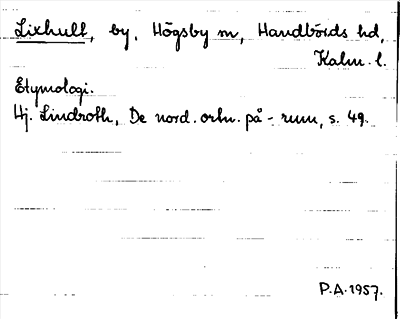 Lixhult, by, Högsby m, Handbörds hd,
Kalm. l.
Etymologi.
Hj. Lindroth, De nord. ortn. på -rum, s. 49.
P.A. 1957.